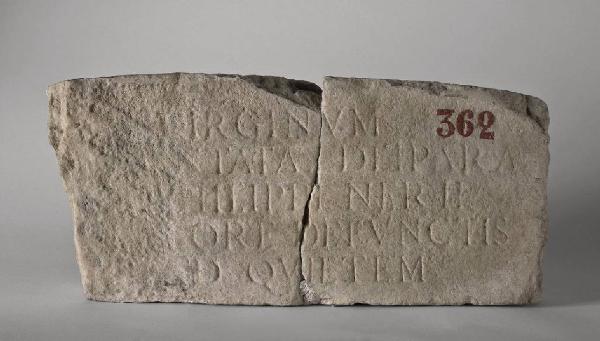 IRGINVM 362
NTATA DEIPARA
HILIPPI NERII
ORE DEFVNCTIS
D QVIETEM